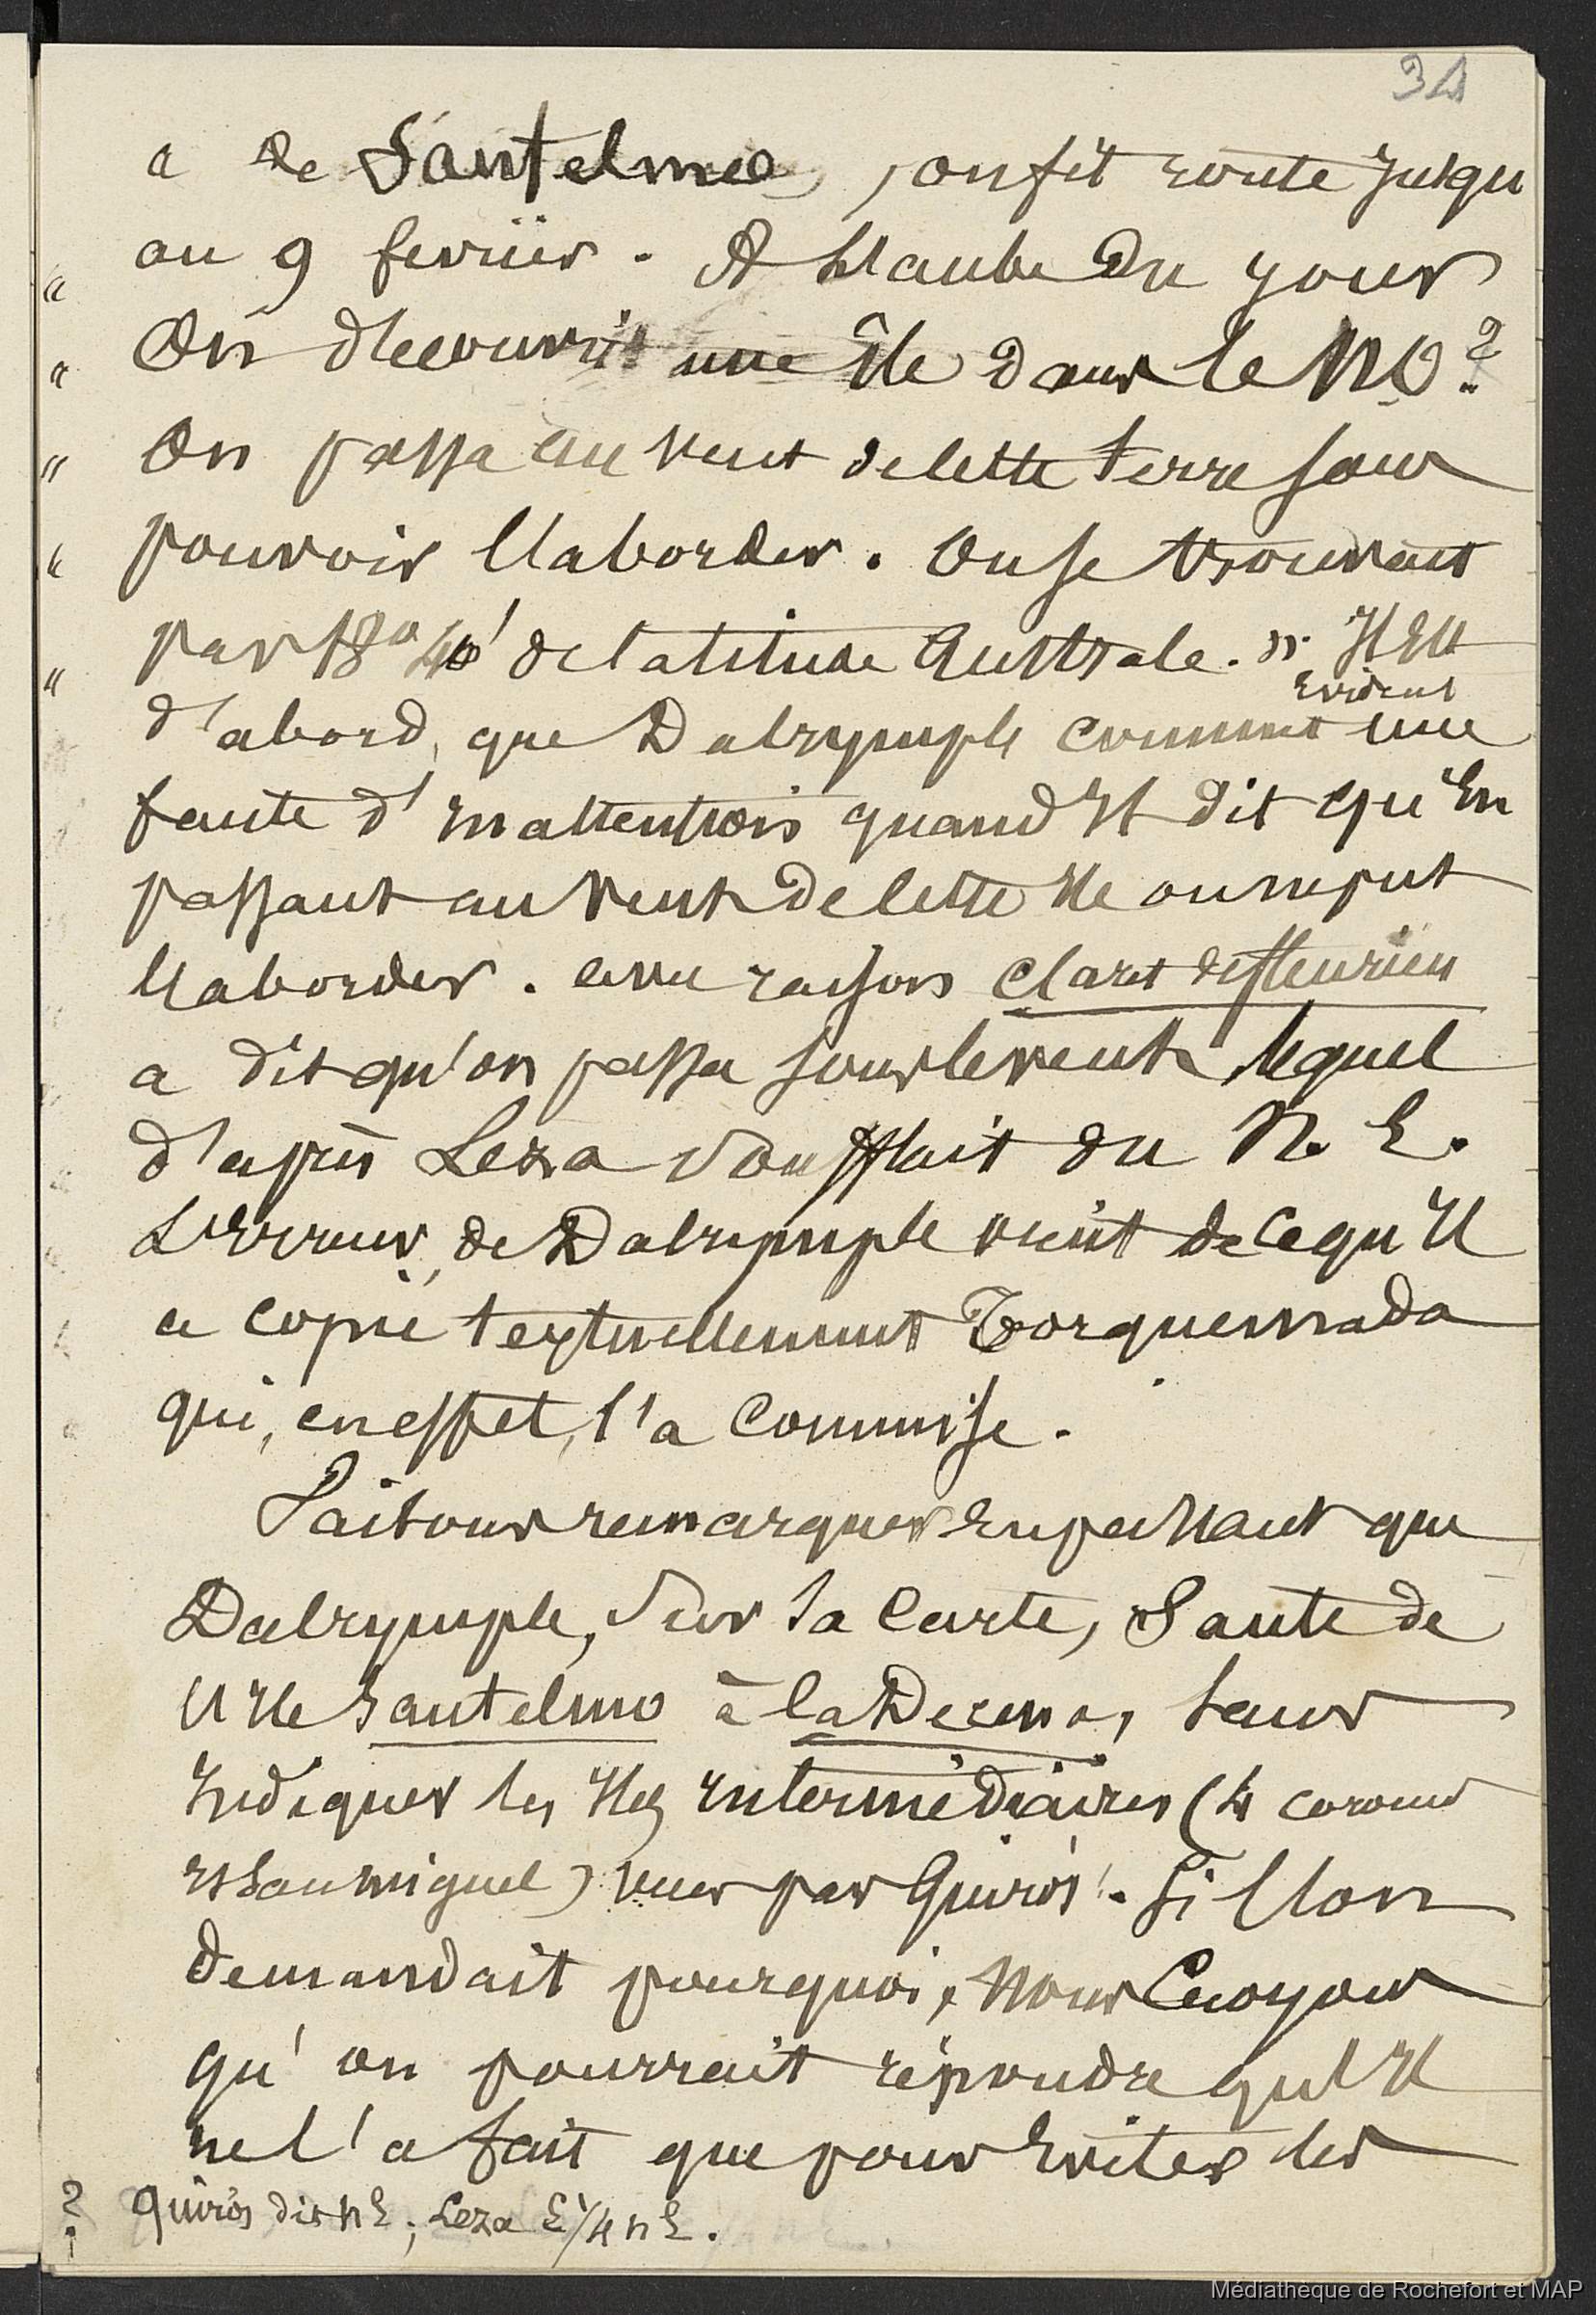 34
a de Santelmo, on fit route jusqu
au 9 fevrier. A l'aube du jour
" On découvrit une île dans le NO ?
" On passa au vent de cette terre sans
" pouvoir l'aborder. On se trouvait
" par 18° 40' de latitude Australe. » Il est
évident
d'abord, que Dalrymple commit une
faute d'inattention quand il dit qu'en
passant au vent de cette île on ne put
l'aborder. avec raison Claret de fleurieu
a dit qu'on passa sous le vent, lequel
d'après Leza soufflait du N. E.
L'erreur de Dalrymple vient de ce qu'il
a copié textuellement Torquemada
qui, en effet, l'a commise.
Faisons remarquer en passant que
Dalrymple, sur sa carte, Saute de
l'île santelmo à la Decena, sans
indiquer les îles intermédiaires (4 coronas
et San miguel) vues par Quirós. Si l'on
demandait pourquoi, nous croyons
qu'on pourrait répondre qu'il
ne l'a fait que pour éviter les
? Quirós dit NE ; Leza E 1/4 NE.
Médiathèque de Rochefort et MAP